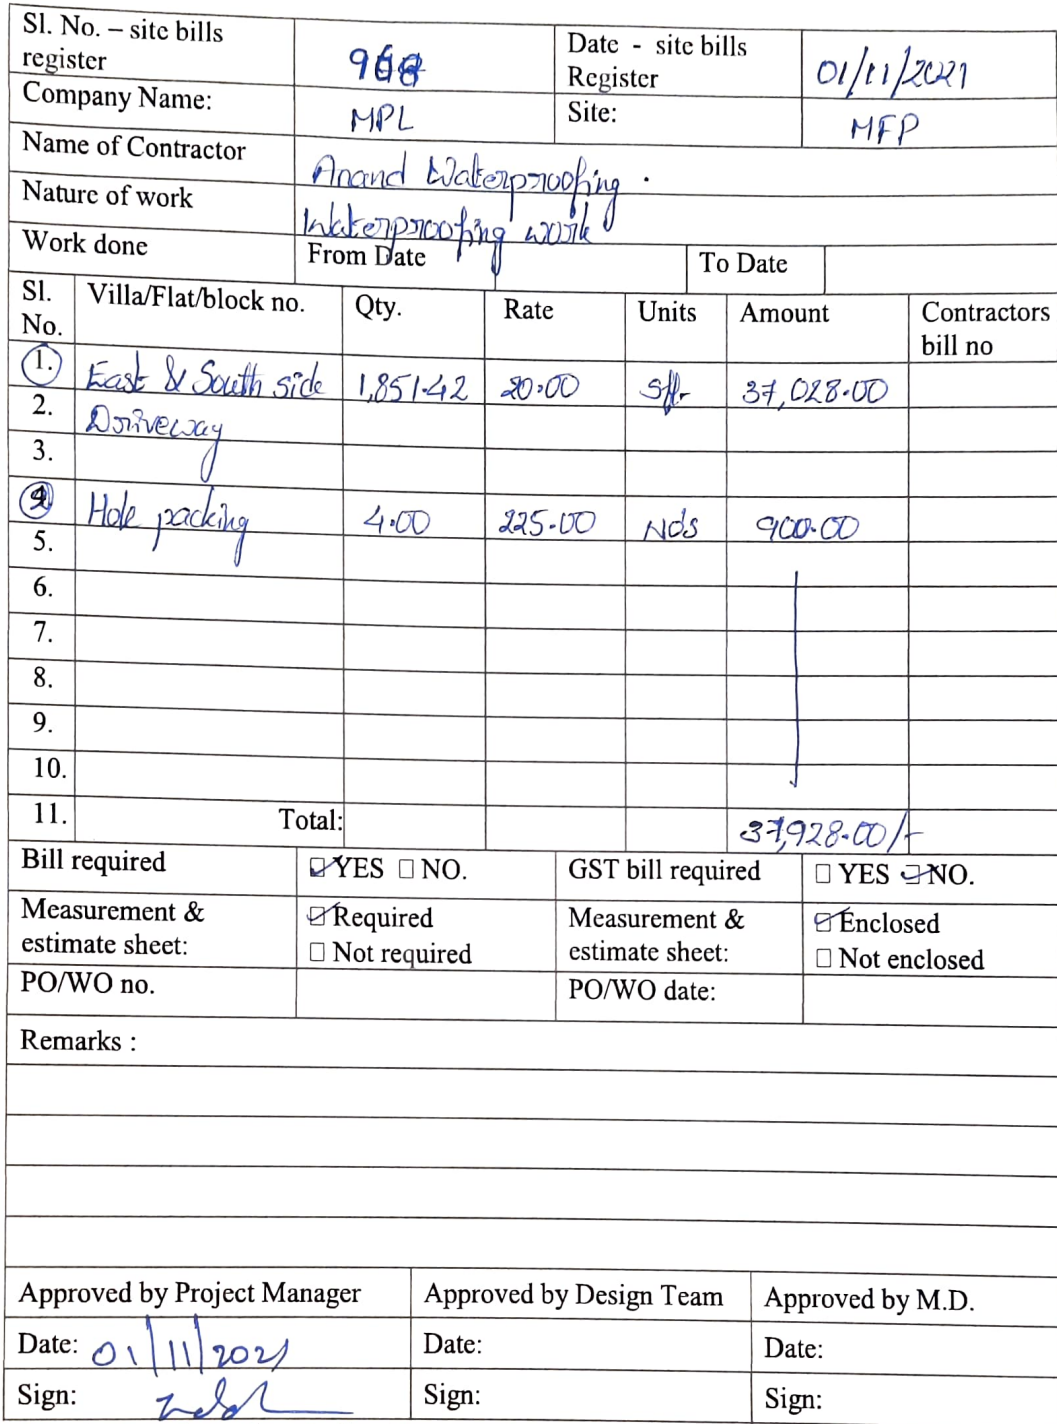 Sl. No. – site bills register Date - site bills Register 01/11/2021
Company Name: MPL Site: MFP
Name of Contractor Anand Waterproofing.
Nature of work Waterproofing work
Work done From Date To Date
Sl. No. Villa/Flat/block no. Qty. Rate Units Amount Contractors bill no
1. East & South side 1,851.42 20.00 sft. 37,028.00
2. Driveway
3.
Hole packing 4.00 225.00 Nos 900.00
5.
6.
7.
8.
9.
10.
11. Total: 37,928.00/-
Bill required YES NO. GST bill required YES NO.
Measurement & estimate sheet: Required Not required Measurement & estimate sheet: Enclosed Not enclosed
PO/WO no. PO/WO date:
Remarks :
Approved by Project Manager Approved by Design Team Approved by M.D.
Date: 01/11/2021 Date: Date:
Sign: Sign: Sign: